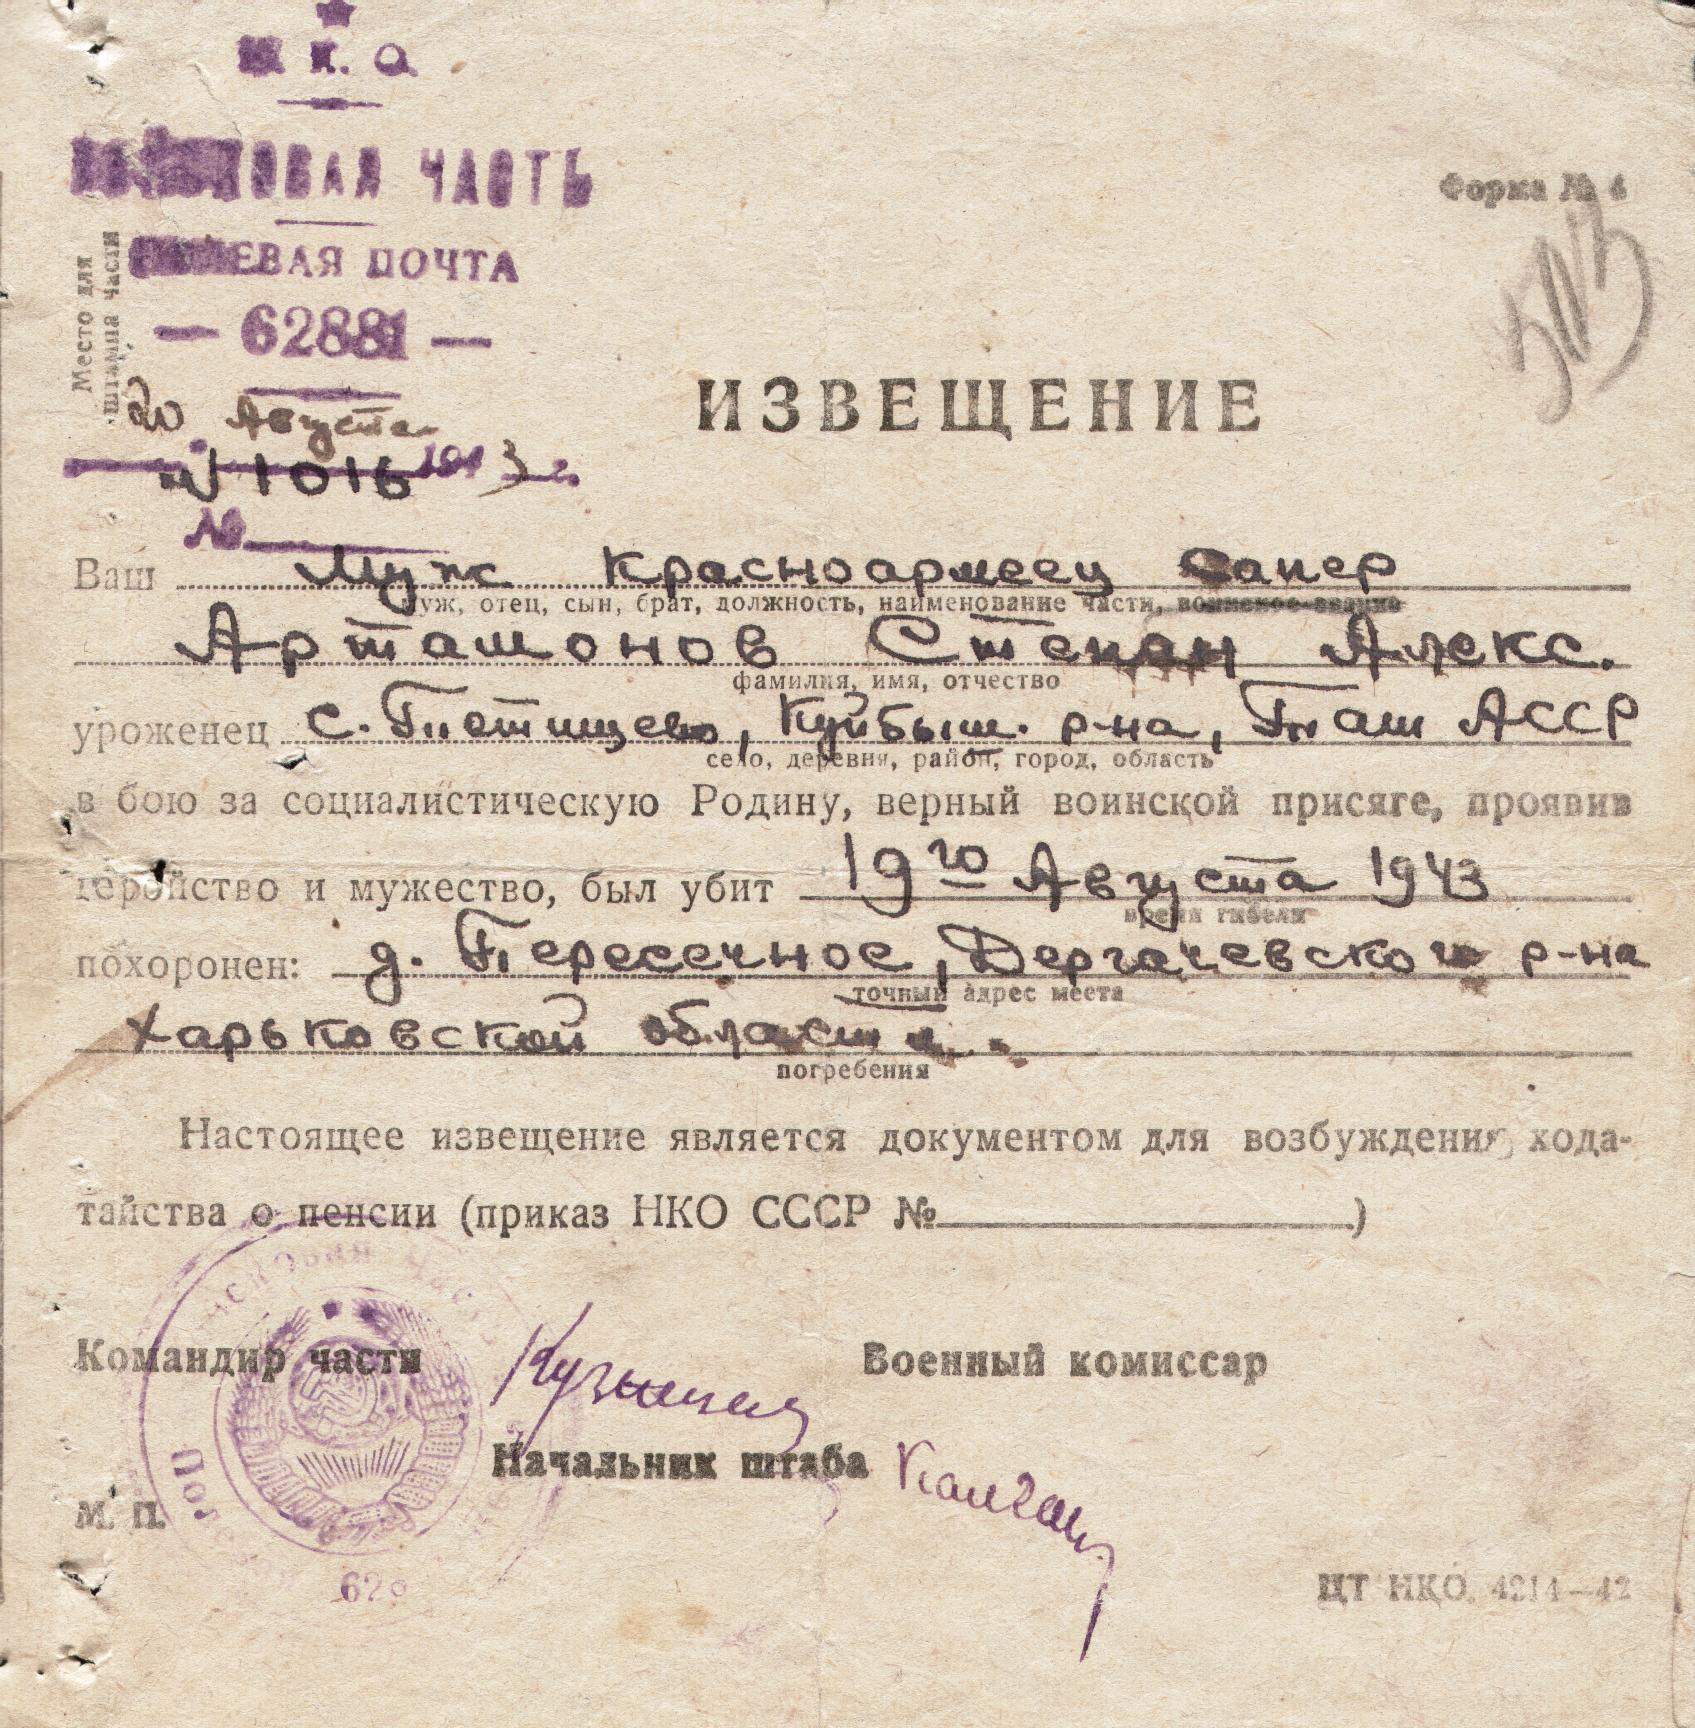 К. А.
ВОЙСКОВАЯ ЧАСТЬ
ПОЛЕВАЯ ПОЧТА
— 62881 —
20 Августа
1943 г.
№ 1016
№
Место для
штампа части
Форма № 4
ИЗВЕЩЕНИЕ
Ваш Муж Красноармеец Сапер
муж, отец, сын, брат, должность, наименование части, воинское звание
Артамонов Степан Алекс.
фамилия, имя, отчество
уроженец с. Потищево, Куйбыш. р-на, Таш АССР
село, деревня, район, город, область
в бою за социалистическую Родину, верный воинской присяге, проявив
геройство и мужество, был убит 19го Августа 1943
время гибели
похоронен: д. Пересечное, Дергачевского р-на
точный адрес места
Харьковской области.
погребения
Настоящее извещение является документом для возбуждения хода-
тайства о пенсии (приказ НКО СССР № )
Командир части
Военный комиссар
Начальник штаба
М. П.
ЦТ НКО. 4214—42